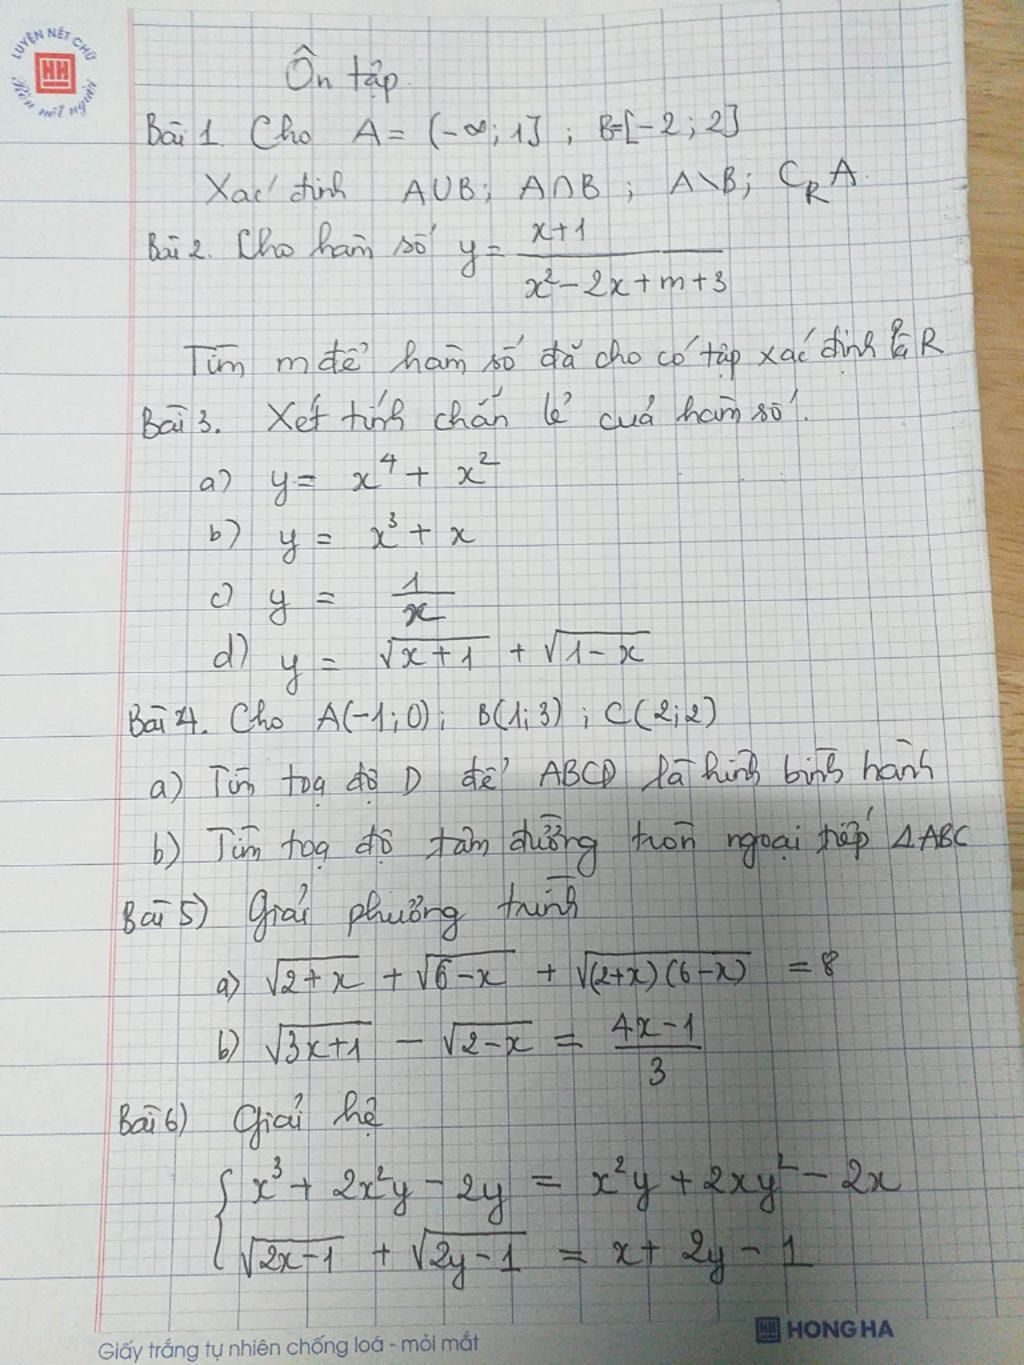 LUYỆN NÉT CHỮ
HH
Rèn nết người
Ôn tập.
Bài 1. Cho A = (-∞; 1] ; B=[-2; 2]
Xác định A∪B; A∩B ; A\B; C_R A.
Bài 2. Cho hàm số y = (x+1)/(x²-2x+m+3)
Tìm m để hàm số đã cho có tập xác định là R
Bài 3. Xét tính chẵn lẻ của hàm số.
a) y = x⁴ + x²
b) y = x³ + x
c) y = 1/x
d) y = √(x+1) + √(1-x)
Bài 4. Cho A(-1;0); B(1;3) ; C(2;2)
a) Tìm toạ độ D để ABCD là hình bình hành
b) Tìm toạ độ tâm đường tròn ngoại tiếp ΔABC
Bài 5) Giải phương trình
a) √(2+x) + √(6-x) + √((2+x)(6-x)) = 8
b) √(3x+1) - √(2-x) = (4x-1)/3
Bài 6) Giải hệ
{ x³ + 2x²y - 2y = x²y + 2xy² - 2x
√(2x-1) + √(2y-1) = x + 2y - 1
Giấy trắng tự nhiên chống loá - mỏi mắt
HH HONG HA